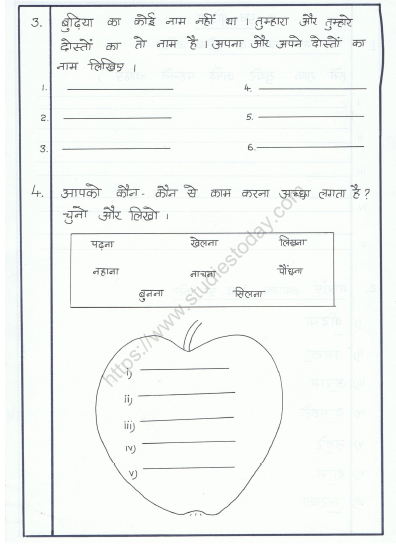 3. बुढ़िया का कोई नाम नहीं था । तुम्हारा और तुम्हारे
दोस्तों का तो नाम है । अपना और अपने दोस्तों का
नाम लिखिए ।
1. 4.
2. 5.
3. 6.
4. आपको कौन-कौन से काम करना अच्छा लगता है ?
चुनो और लिखो ।
पढ़ना खेलना लिखना
नहाना नाचना पौंछना
बुनना सिलना
i)
ii)
iii)
iv)
v)
https://www.studiestoday.com